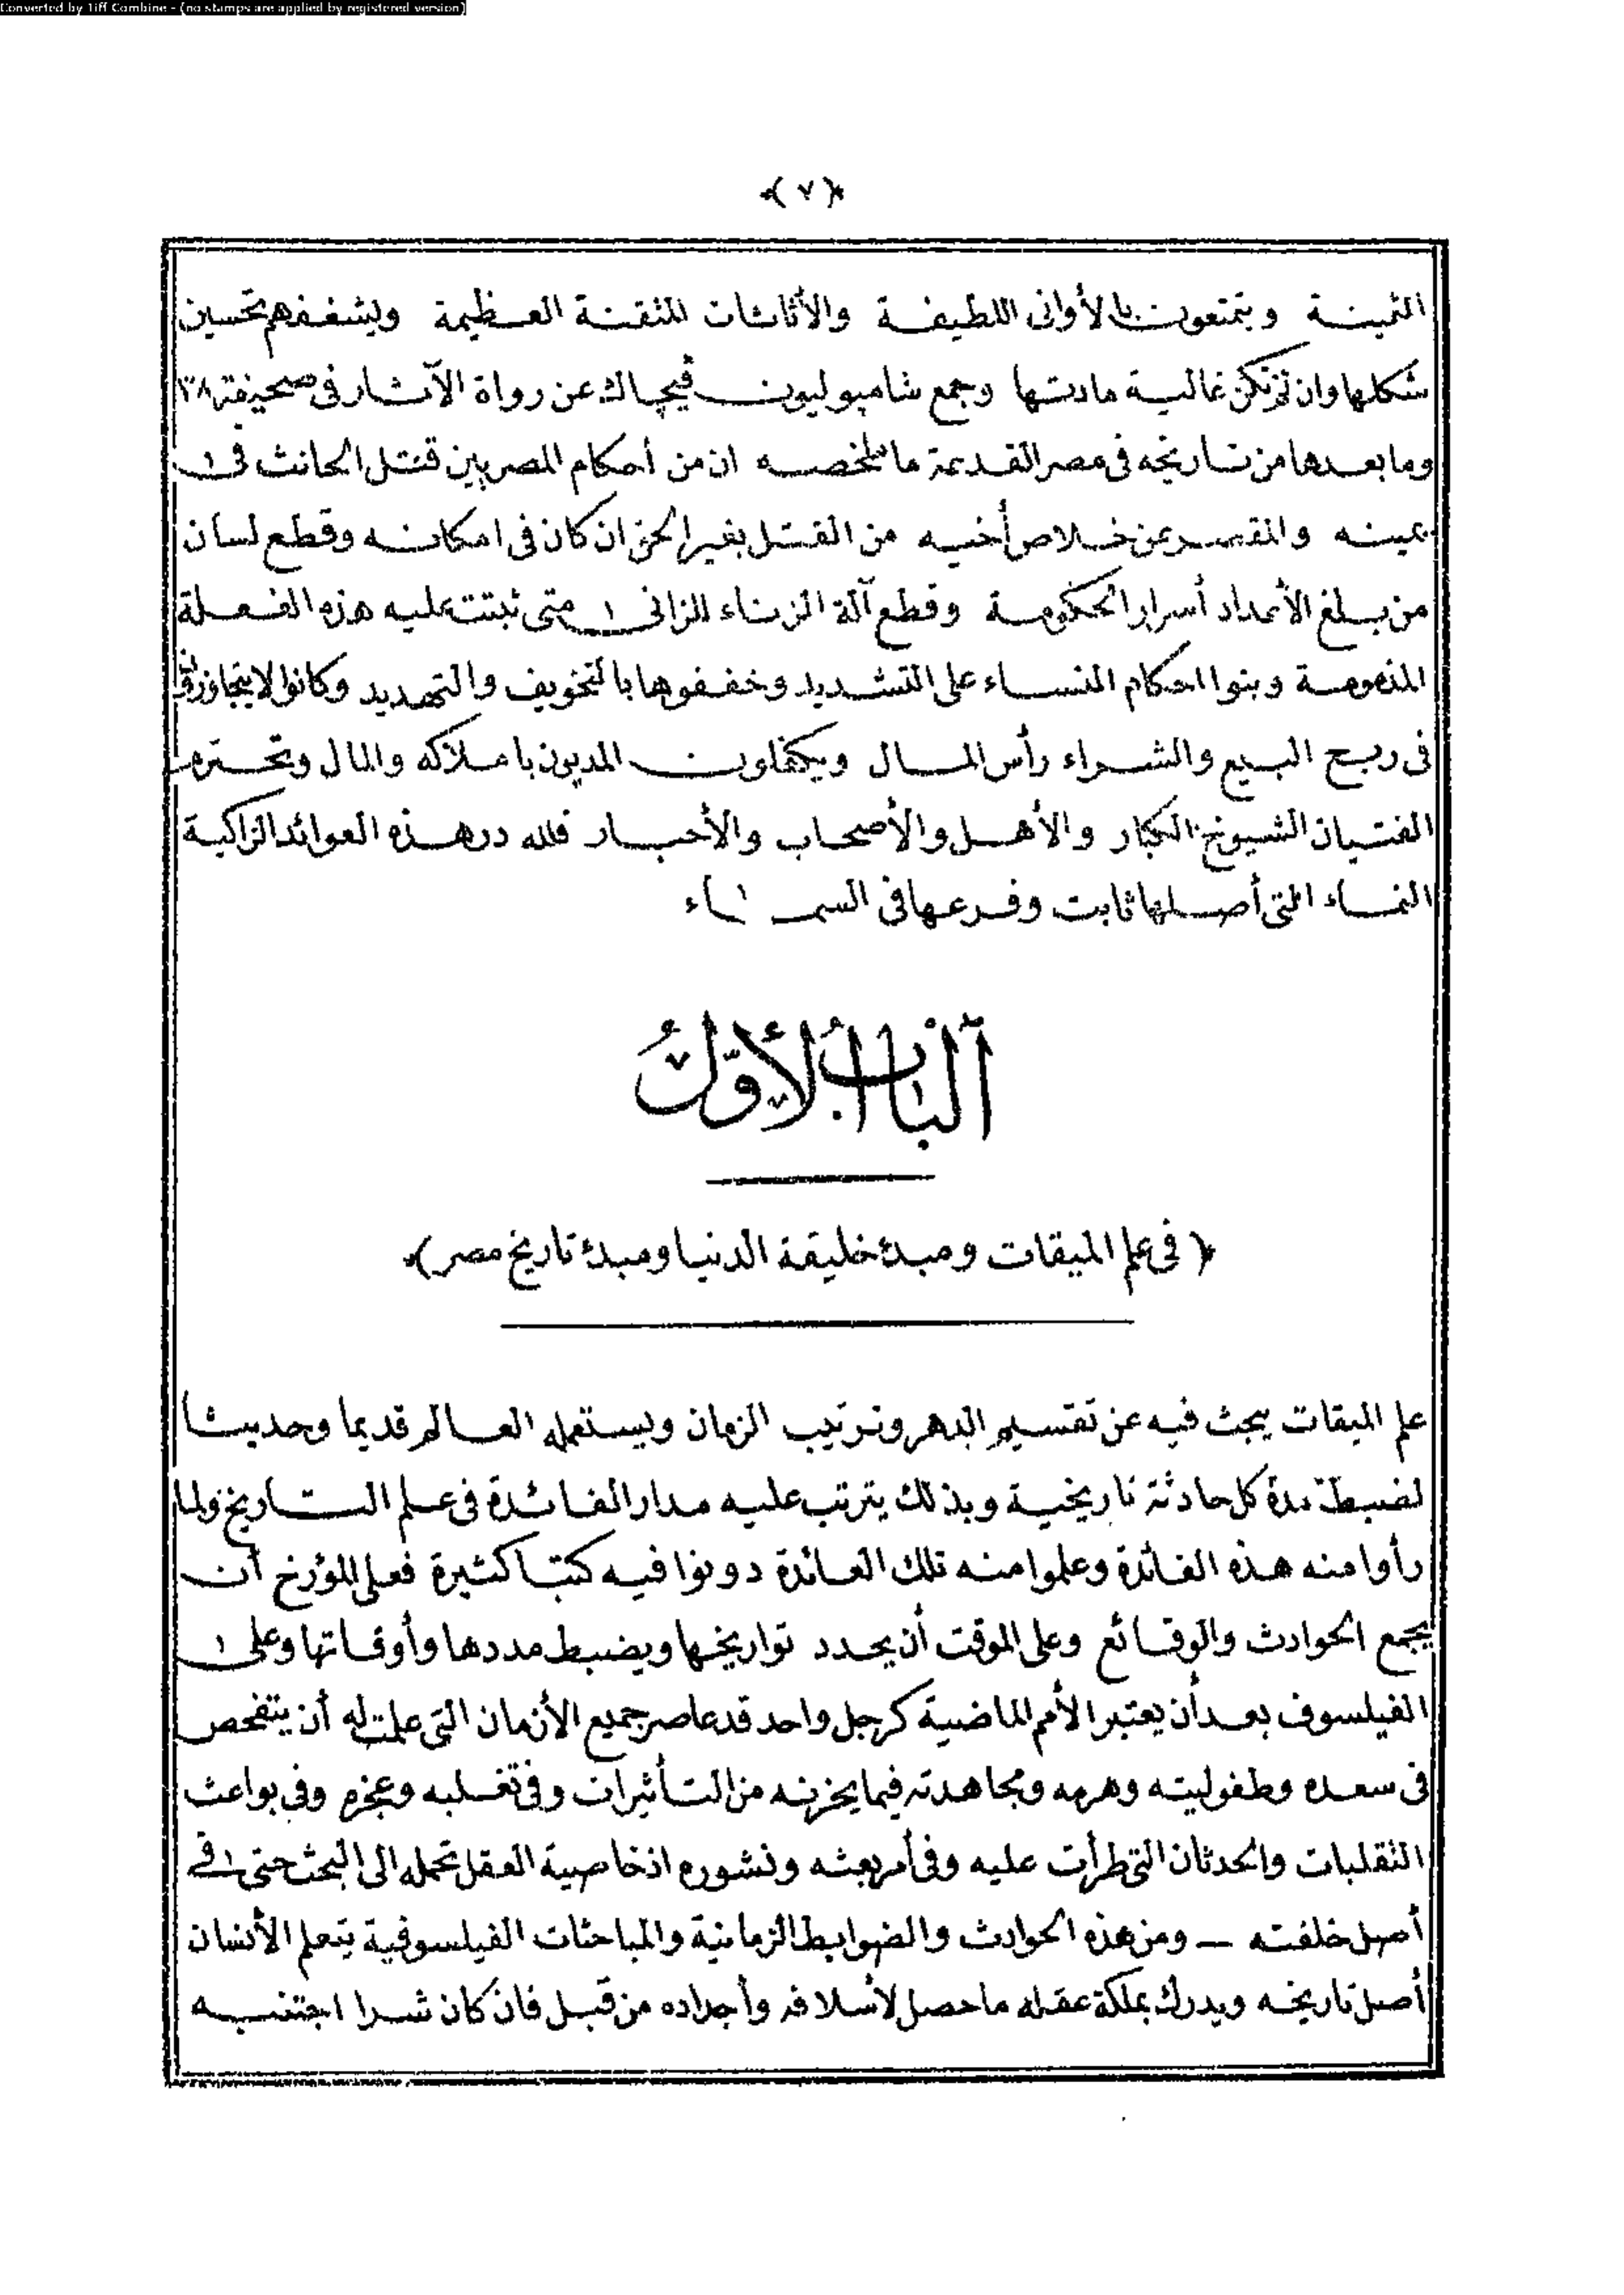 Converted by Tiff Combine - (no stamps are applied by registered version)
﴿ ٧ ﴾
الثمينة ويتمتعون بالأوانى اللطيفة والأثاثات المتقنة العظيمة ويشغفهم تحسين
شكلها وان لم تكن غالية مادتها وجمع شامبوليون فيچاك عن رواة الآثار فى صحيفة ٣٨
وما بعدها من تاريخه فى مصر القديمة ما ملخصه ان من أحكام المصريين قتل الحانث فى
يمينه والمقصر عن خلاص أخيه من القتل بغير الحق ان كان فى امكانه وقطع لسان
من بلغ الأعداء أسرار الحكومة وقطع آلة الزناء للزانى متى ثبتت عليه هذه الفعلة
المذمومة وبنوا احكام النساء على التشديد وخففوها بالتخويف والتهديد وكانوا لا يتجاوزون
فى ربح البيع والشراء رأس المال ويكفلون المديون باملاكه والمال وتحترم
الفتيان الشيوخ الكبار والأهل والأصحاب والأحبار فلله در هذه العوائد الزاكية
النماء التى أصلها ثابت وفرعها فى السماء
الْبَابُ الْأَوَّلُ
﴿ فى علم الميقات ومبدء خليقة الدنيا ومبدء تاريخ مصر ﴾
علم الميقات يبحث فيه عن تقسيم الدهر وترتيب الزمان ويستعمله العالم قديما وحديثا
لضبط مدة كل حادثة تاريخية وبذلك يترتب عليه مدار الفائدة فى علم التاريخ ولما
رأوا منه هذه الفائدة وعلموا منه تلك العائدة دونوا فيه كتبا كثيرة فعلى المؤرخ أن
يجمع الحوادث والوقائع وعلى الموقت أن يحدد تواريخها ويضبط مددها وأوقاتها وعلى
الفيلسوف بعد أن يعتبر الأمم الماضية كرجل واحد قد عاصر جميع الأزمان التى علمت له أن يتفحص
فى سعده وطفوليته وهرمه ومجاهدته فيما يحزنه من التأثيرات وفى تغلبه وعجزه وفى بواعث
التقلبات والحدثان التى طرأت عليه وفى أمر بعثه ونشوره اذ خاصية العقل تحمله الى البحث حتى فى
أصل خلقته — ومن هذه الحوادث والضوابط الزمانية والمباحثات الفيلسوفية يتعلم الأنسان
أصل تاريخه ويدرك بملكة عقله ما حصل لأسلافه وأجداده من قبل فان كان شرا اجتنبه